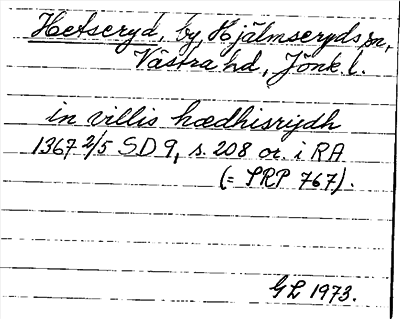 Hetseryd, by, Hjälmseryds sn,
Västra hd, Jönk. l.
in villis hædhisrydh
1367 2/5 SD 9, s. 208 or. i RA
(= SRP 767).
GL 1973.